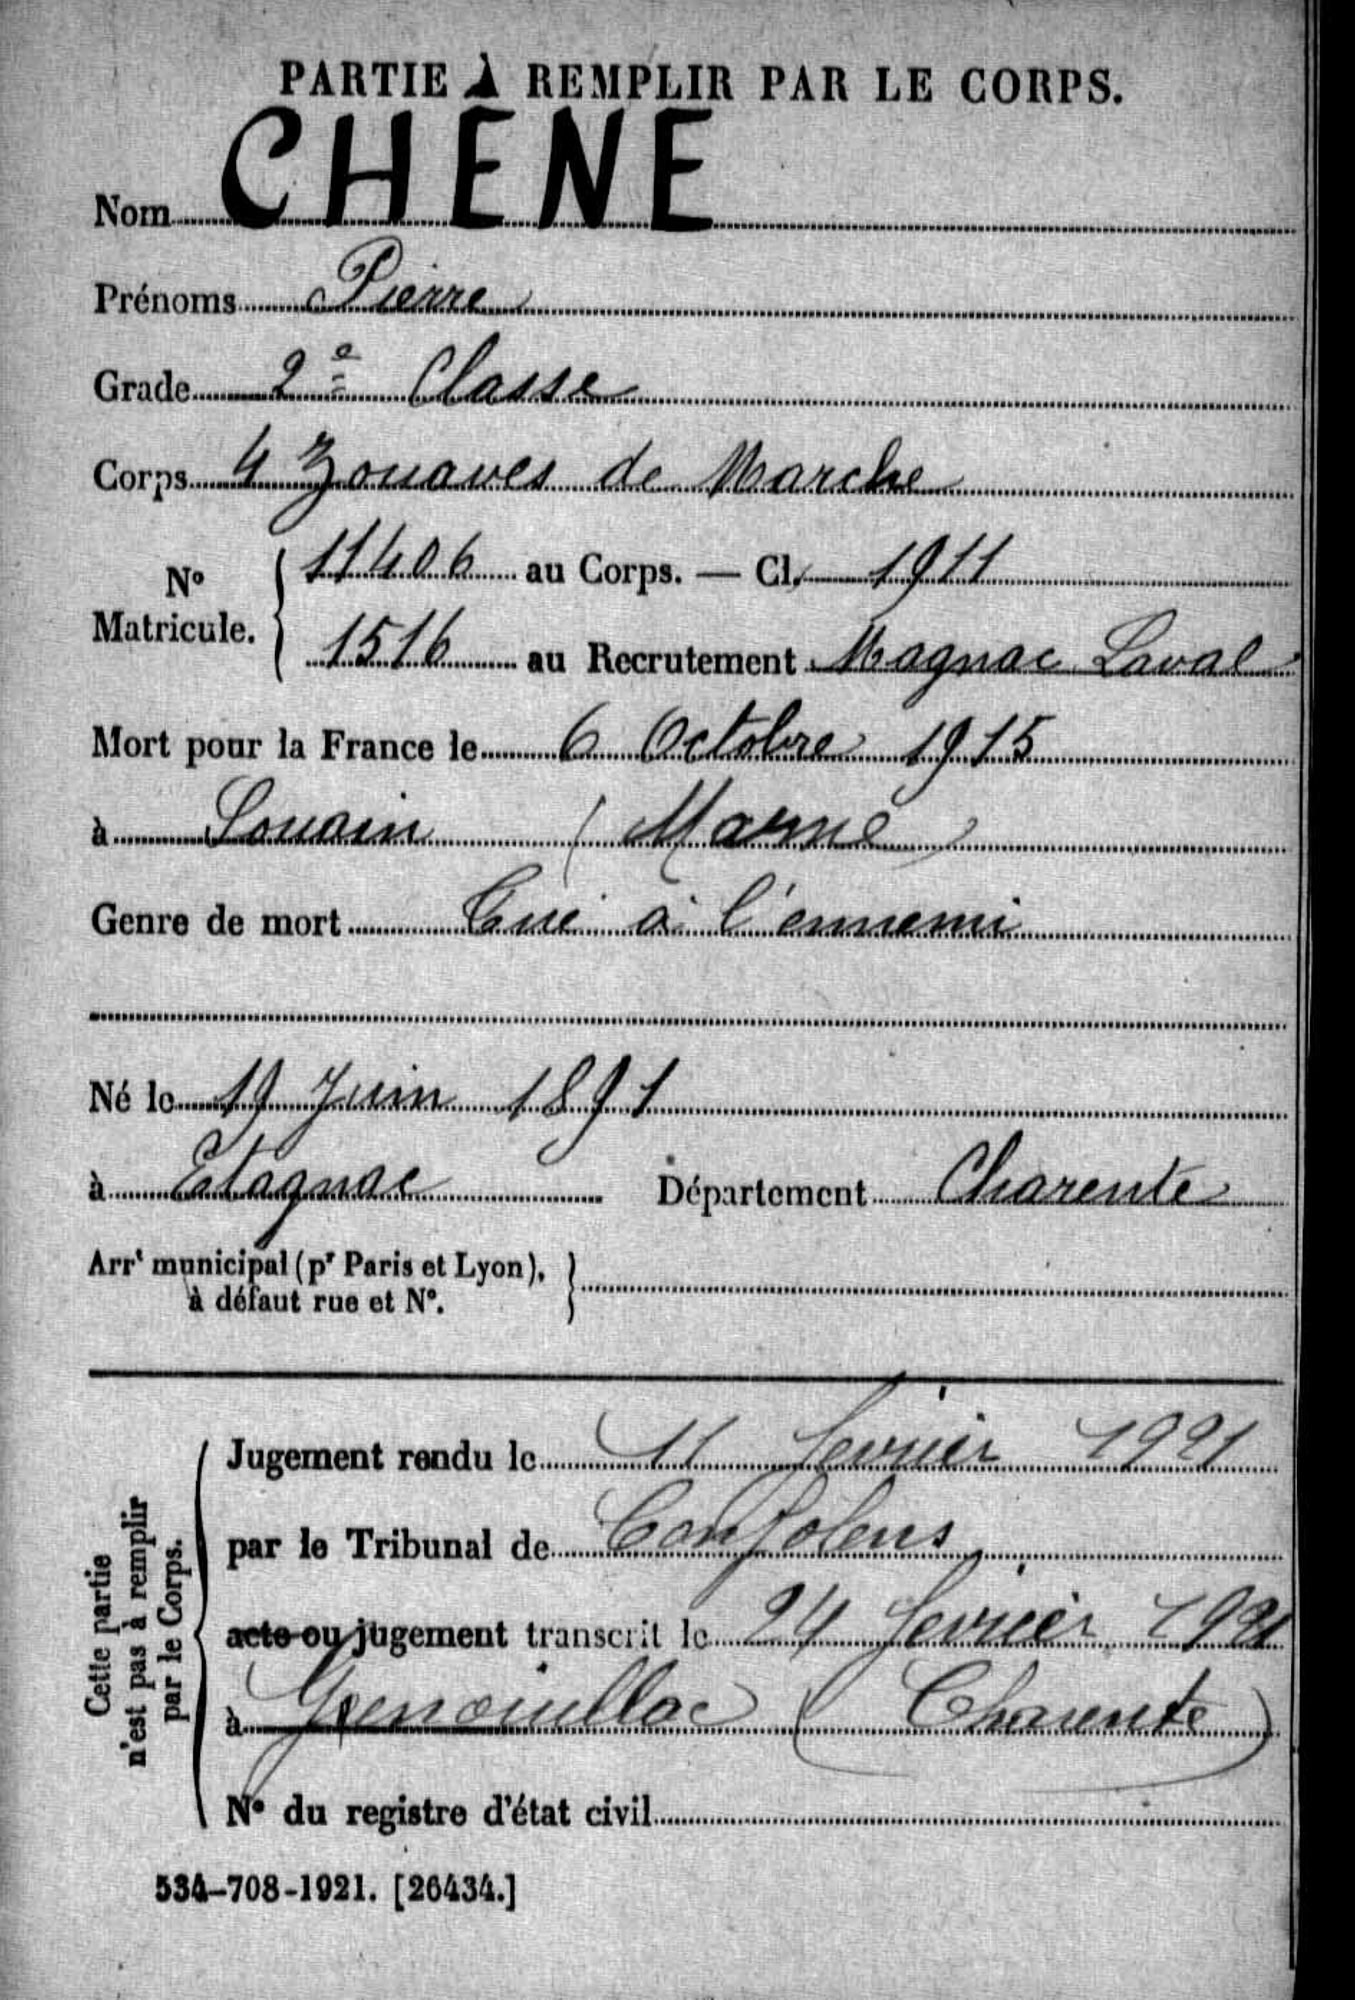 PARTIE À REMPLIR PAR LE CORPS.
Nom CHÊNE
Prénoms Pierre
Grade 2e Classe
Corps 4 Zouaves de Marche
No Matricule. { 11406 au Corps. — Cl. 1911
1516 au Recrutement Magnac Laval
Mort pour la France le 6 Octobre 1915
à Souain (Marne)
Genre de mort Tué à l'ennemi
Né le 19 Juin 1891
à Etagnac Département Charente
Arrt municipal (pr Paris et Lyon), }
à défaut rue et No.
Cette partie
n'est pas à remplir
par le Corps.
Jugement rendu le 11 fevrier 1921
par le Tribunal de Confolens
acte ou jugement transcrit le 24 fevrier 1921
à Genouillac (Charente)
No du registre d'état civil
534-708-1921. [26434.]